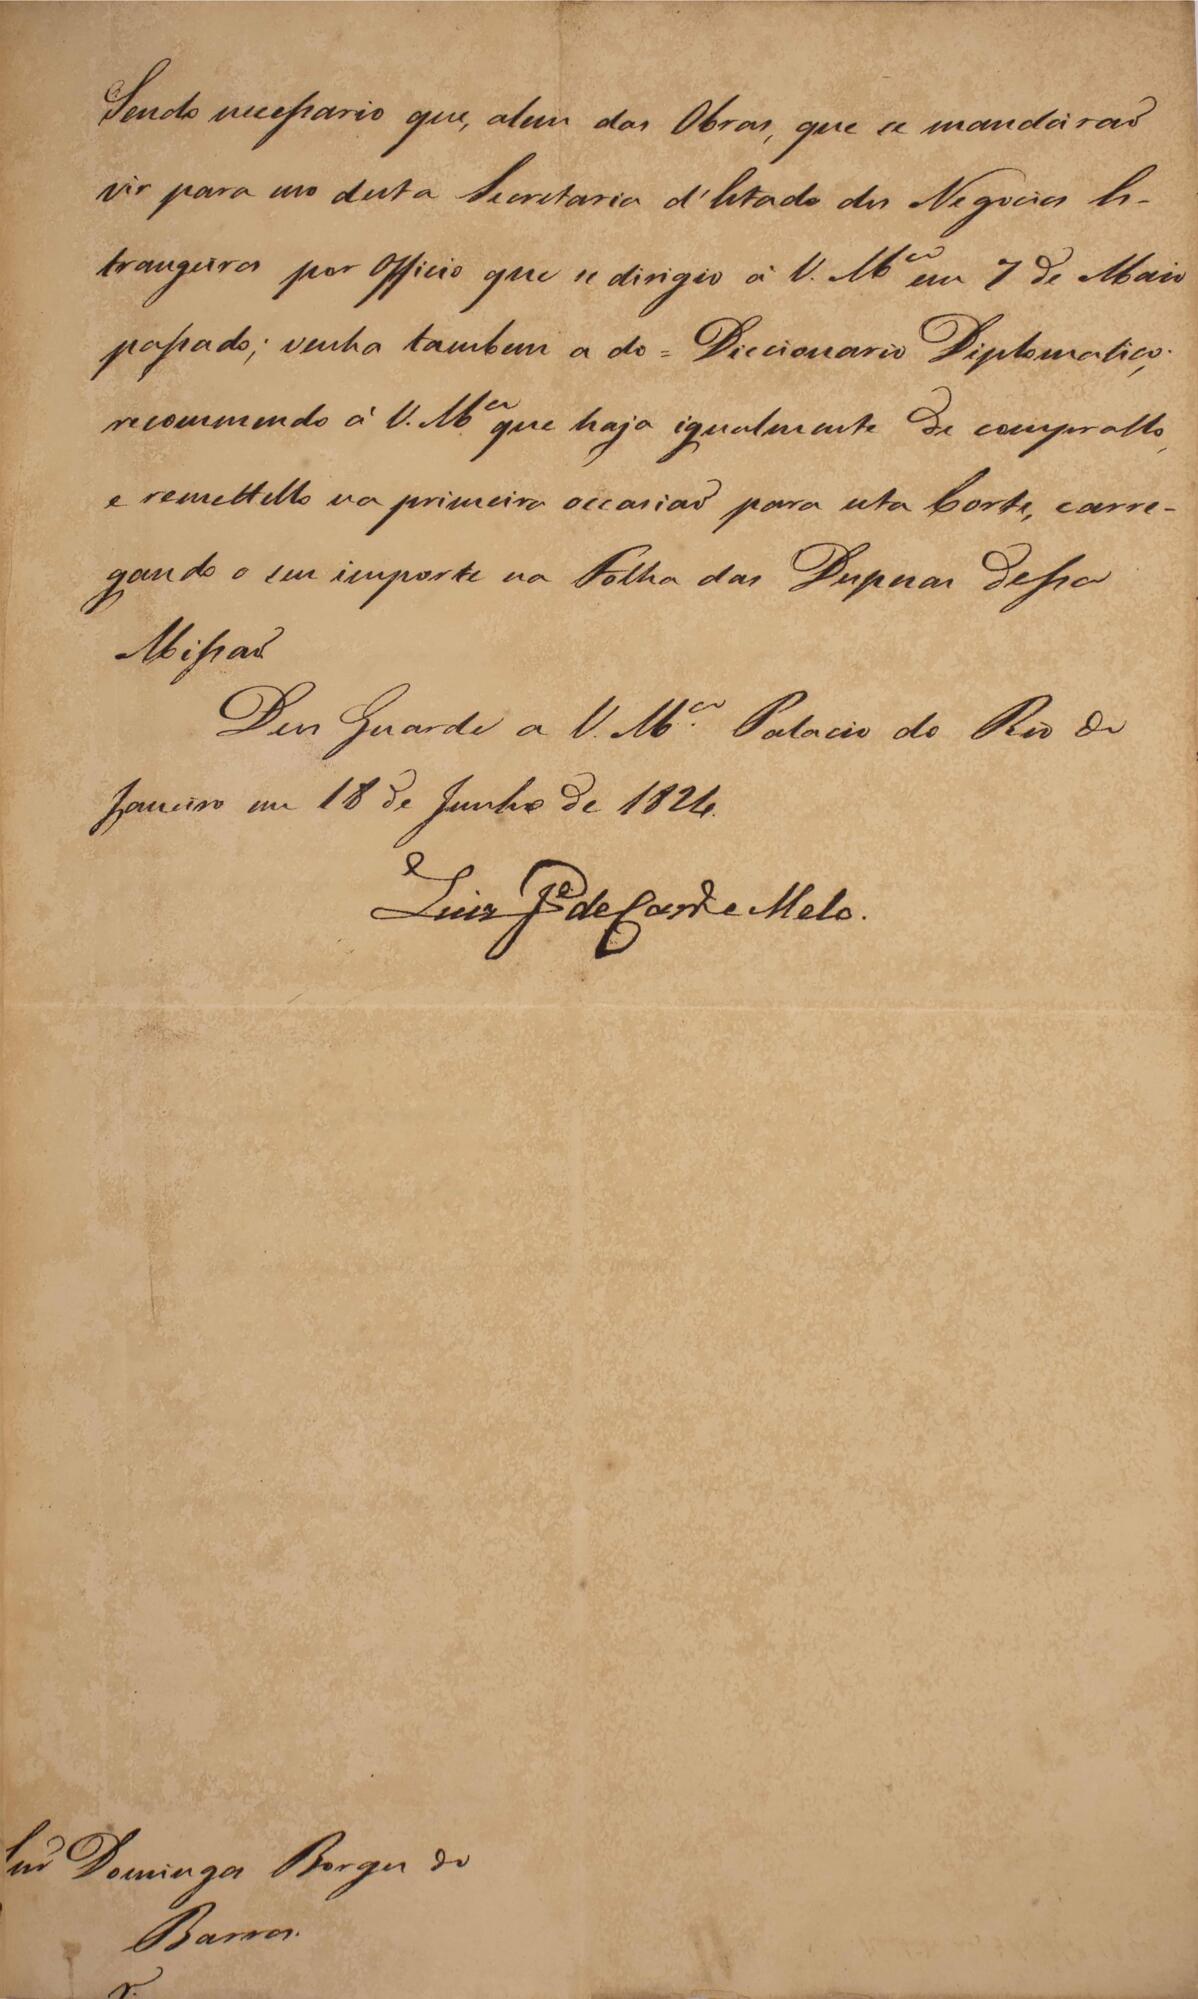 Sendo necessario que, alem das Obras, que se mandárão
vir para uso desta Secretaria d'Estado dos Negocios Es-
trangeiros por Officio que se dirigio á V. M.ce em 7 de Maio
passado; venha tambem a do = Diccionario Diplomatico;
recommendo á V. M.ce que haja igualmente de comprallo,
e remettello na primeira occasião para esta Corte, carre-
gando o seu importe na Folha das Despesas dessa
Missão
Deus Guarde a V. M.ce Palacio do Rio de
Janeiro em 18 de Junho de 1824.
Luiz Je. de Carvo. e Melo.
Snr Domingos Borges de
Barros.